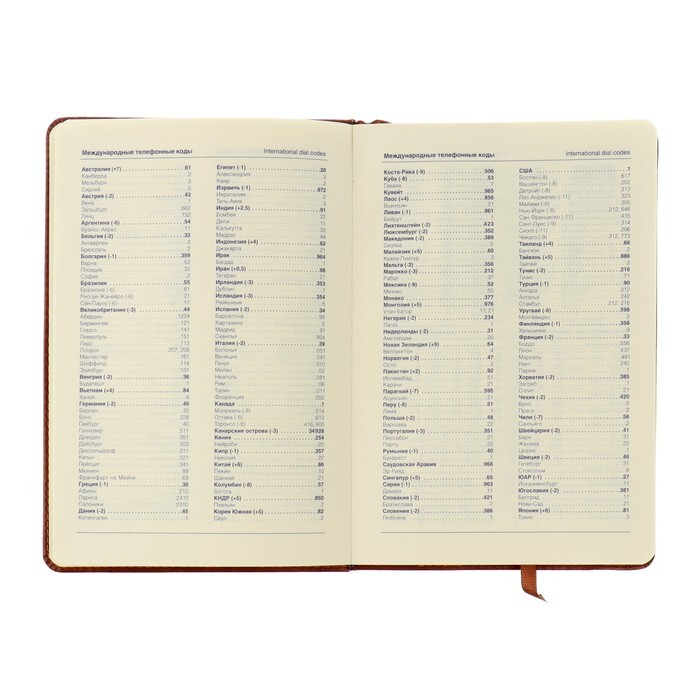 Международные телефонные коды
International dial codes
Австралия (+7) 61
Канберра 2
Мельбурн 3
Сидней 2
Австрия (-2) 43
Вена 1
Зальцбург 662
Линц 732
Аргентина (-6) 54
Буэнос-Айрес 11
Бельгия (-2) 32
Антверпен 3
Брюссель 2
Болгария (-1) 359
Варна 52
Пловдив 32
София 2
Бразилия 55
Бразилиа (-6) 61
Рио-де-Жанейро (-6) 21
Сан-Паулу (-6) 11
Великобритания (-3) 44
Абердин 1224
Бирмингем 121
Глазго 141
Ливерпуль 151
Лидс 113
Лондон 207, 208
Манчестер 161
Шеффилд 114
Эдинбург 131
Венгрия (-2) 36
Будапешт 1
Вьетнам (+4) 84
Ханой 4
Германия (-2) 49
Берлин 30
Бонн 228
Гамбург 40
Ганновер 511
Дрезден 351
Дуйсбург 203
Дюссельдорф 211
Кельн 221
Лейпциг 341
Мюнхен 89
Франкфурт на Майне 69
Греция (-1) 30
Афины 210
Лариса 2410
Салоники 2310
Дания (-2) 45
Копенгаген 1
Египет (-1) 20
Александрия 3
Каир 2
Израиль (-1) 972
Иерусалим 2
Тель-Авив 3
Индия (+2,5) 91
Бомбей 22
Дели 11
Калькутта 33
Мадрас 44
Индонезия (+4) 62
Джакарта 21
Ирак 964
Багдад 1
Иран (+0,5) 98
Тегеран 21
Ирландия (-3) 353
Дублин 1
Исландия (-3) 354
Рейкьявик 5
Испания (-2) 34
Барселона 93
Картахена 5
Мадрид 91
Севилья 954
Италия (-2) 39
Болонья 051
Венеция 041
Генуя 010
Милан 02
Неаполь 081
Рим 06
Турин 011
Флоренция 055
Канада 1
Монреаль (-8) 514
Оттава (-8) 613
Торонто (-8) 416, 905
Канарские острова (-3) 34928
Кения 254
Найроби 20
Кипр (-1) 357
Никозия 22
Китай (+5) 86
Пекин 10
Шанхай 21
Колумбия (-8) 57
Богота 1
КНДР (+5) 850
Пхеньян 2
Корея Южная (+5) 82
Сеул 2
Международные телефонные коды
International dial codes
Коста-Рика (-9) 506
Куба (-8) 53
Гавана 7
Кувейт 965
Лаос (+4) 856
Вьентьян 21
Ливан (-1) 961
Бейрут 1
Лихтенштейн (-2) 423
Люксембург (-2) 352
Македония (-2) 389
Скопье 2
Малайзия (+5) 60
Куала-Лумпур 3
Мальта (-2) 356
Марокко (-3) 212
Рабат 37
Мексика (-9) 52
Мехико 55
Монако 377
Монголия (+5) 976
Улан-Батор 11, 21
Нигерия (-2) 234
Лагос 1
Нидерланды (-2) 31
Амстердам 20
Новая Зеландия (+9) 64
Веллингтон 4
Норвегия (-2) 47
Осло 2
Пакистан (+2) 92
Исламабад 51
Карачи 21
Парагвай (-7) 595
Асунсьон 21
Перу (-8) 51
Лима 1
Польша (-2) 48
Варшава 22
Португалия (-3) 351
Лиссабон 21
Порту 22
Румыния (-1) 40
Бухарест 21
Саудовская Аравия 966
Эр-Рияд 1
Сингапур (+5) 65
Сирия (-1) 963
Дамаск 11
Словакия (-2) 421
Братислава 2
Словения (-2) 386
Любляна 1
США 1
Бостон (-8) 617
Вашингтон (-8) 202
Детройт (-8) 313
Лос-Анджелес (-11) 323
Майами (-8) 305
Нью-Йорк (-8) 212, 646
Сан-Франциско (-11) 415
Сент-Луис (-9) 314
Сиэтл (-11) 206
Чикаго (-9) 312, 773
Таиланд (+4) 66
Бангкок 2
Тайвань (+5) 886
Тайпей 2
Тунис (-2) 216
Тунис 71
Турция (-1) 90
Анкара 312
Анталья 242
Стамбул 212, 216
Уругвай (-6) 598
Монтевидео 2
Финляндия (-1) 358
Хельсинки 9
Франция (-2) 33
Бордо 556
Лион 437
Марсель 491
Нант 240
Париж 1
Хорватия (-2) 385
Загреб 1
Сплит 21
Чехия (-2) 420
Брно 5
Прага 2
Чили (-7) 56
Сантьяго 2
Швейцария (-2) 41
Берн 31
Женева 22
Цюрих 1
Швеция (-2) 46
Гетеборг 31
Стокгольм 8
ЮАР (-1) 27
Йоханнесбург 11
Югославия (-2) 381
Белград 11
Нови-Сад 21
Япония (+6) 81
Токио 3